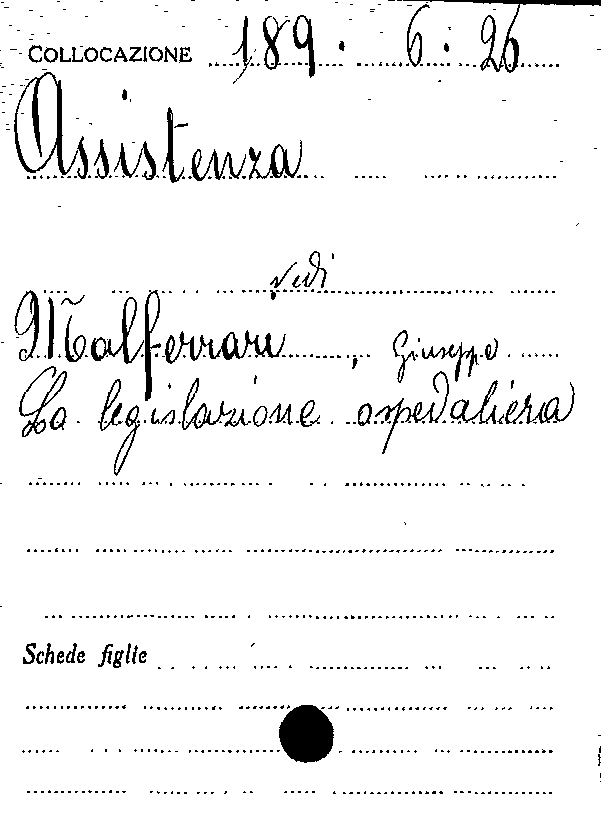 COLLOCAZIONE 189. 6. 26
Assistenza
vedi
Malferrari, Giuseppe
La legislazione ospedaliera
Schede figlie